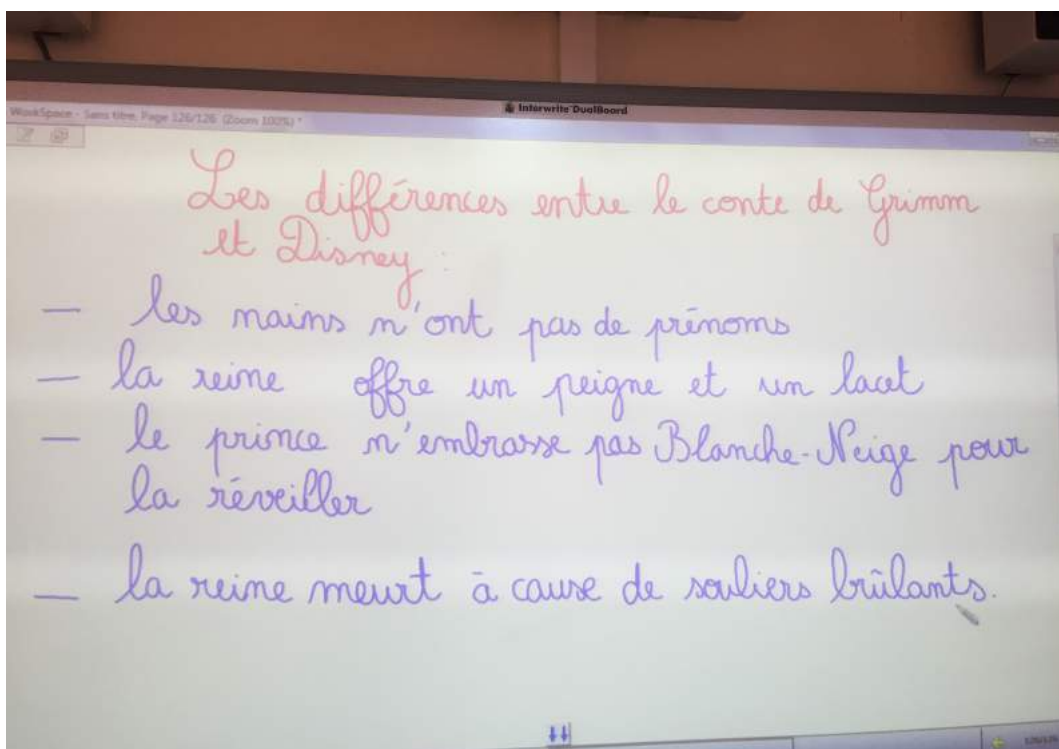 Interwrite DualBoard
WorkSpace - Sans titre, Page 126/126 (Zoom 100%) *
Les différences entre le conte de Grimm
et Disney :
— les nains n'ont pas de prénoms
— la reine offre un peigne et un lacet
— le prince n'embrasse pas Blanche-Neige pour
la réveiller
— la reine meurt à cause de souliers brûlants.
126/126